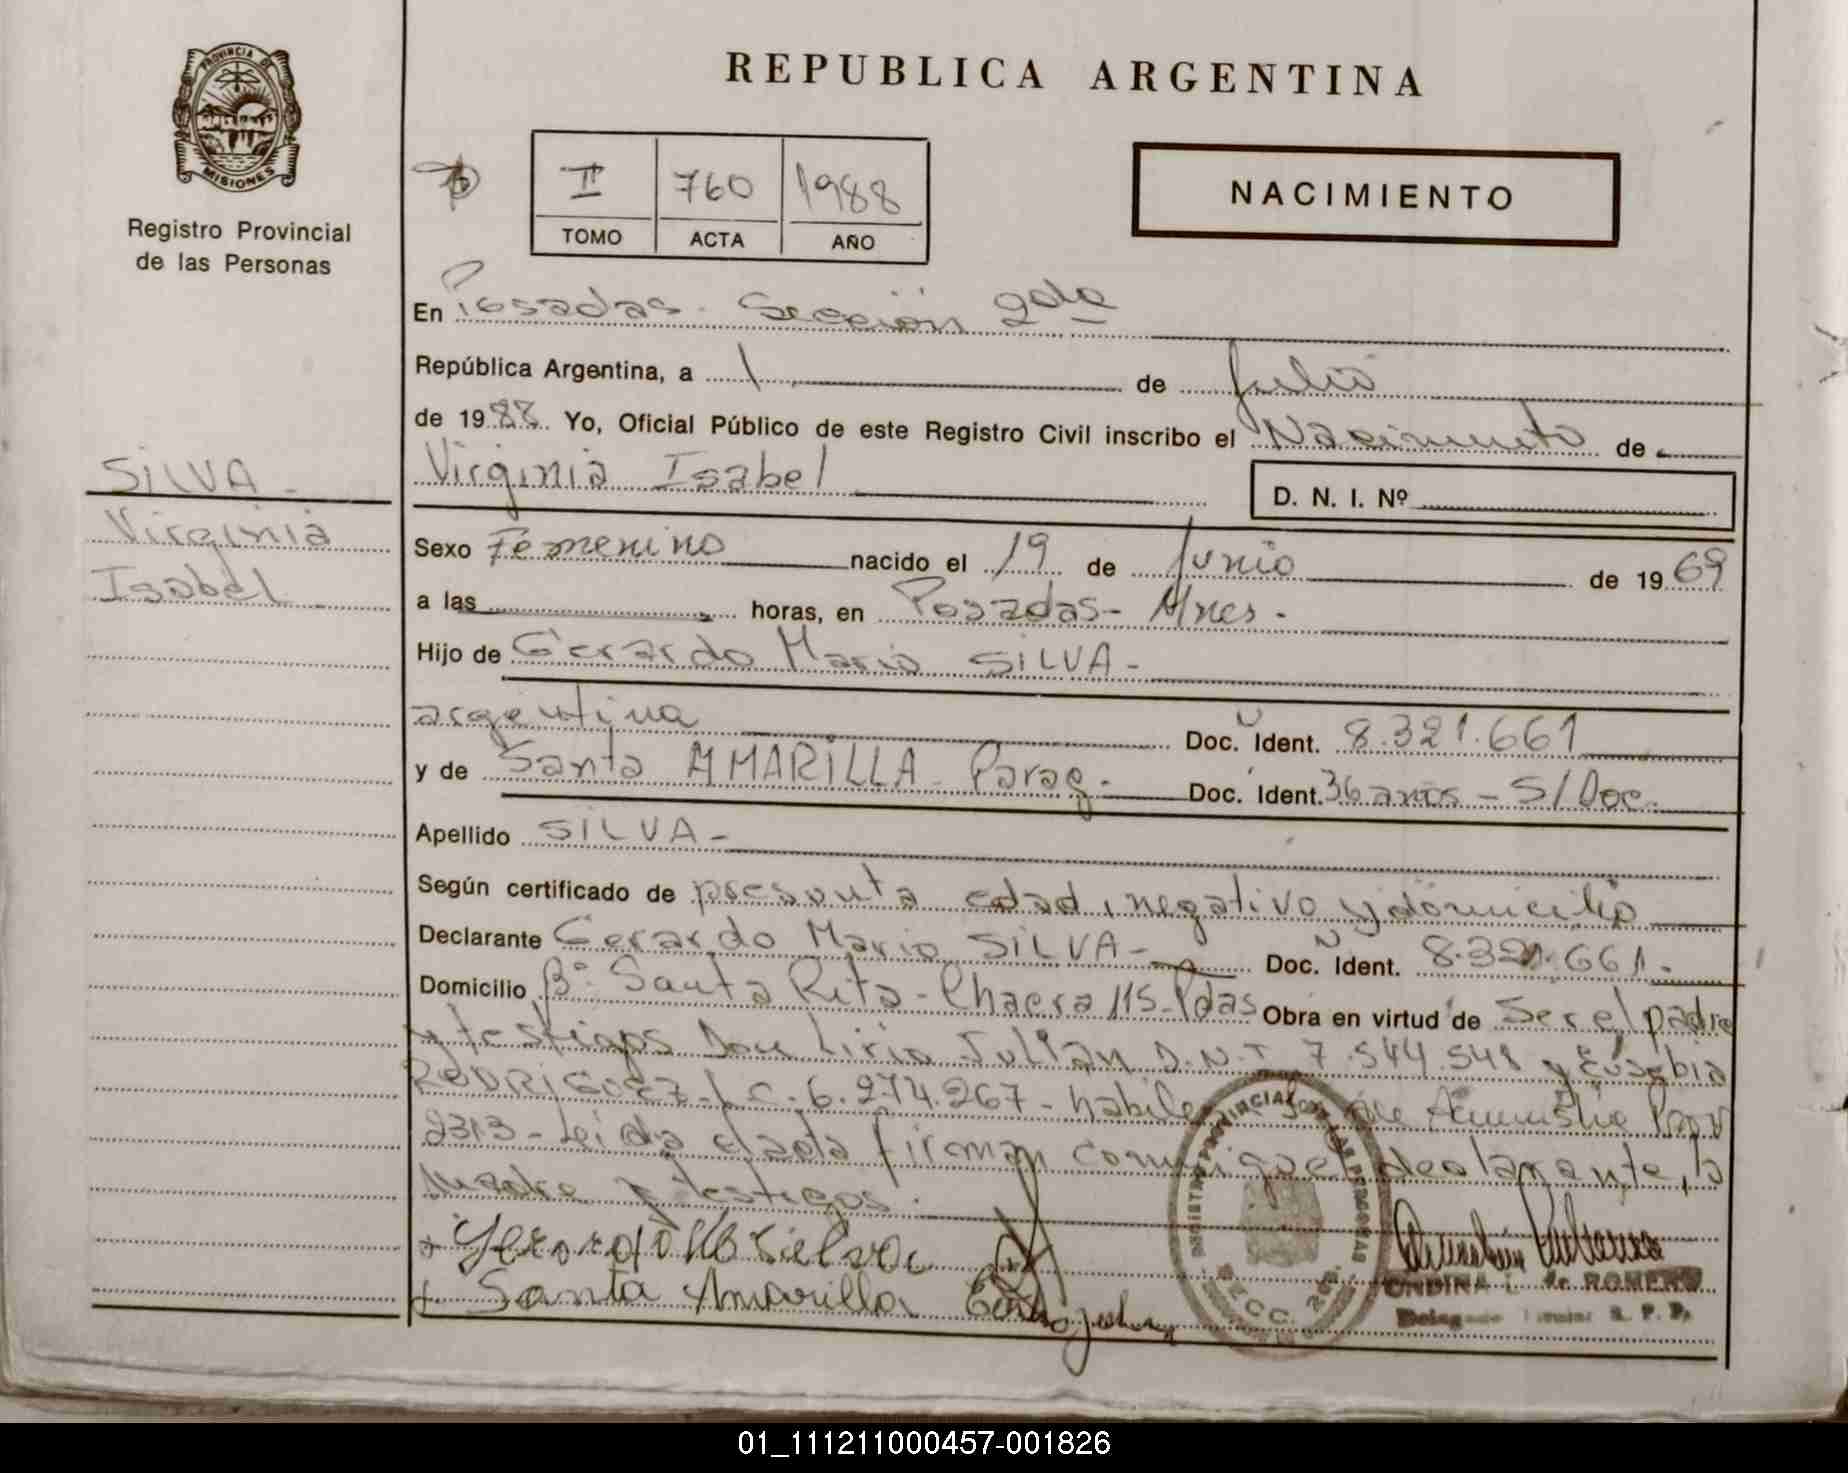 PROVINCIA DE
MISIONES
Registro Provincial
de las Personas
SILVA -
Virginia
Isabel
REPUBLICA ARGENTINA
II 760 1988
TOMO ACTA AÑO
NACIMIENTO
En Posadas - Sección 2da
República Argentina, a 1 de Julio
de 1988. Yo, Oficial Público de este Registro Civil inscribo el Nacimiento de
Virginia Isabel D. N. I. Nº
Sexo Femenino nacido el 19 de Junio de 1969
a las horas, en Posadas - Mnes -
Hijo de Gerardo Mario SILVA -
argentina Doc. Ident. 8.321.661
y de Santa AMARILLA - Parag - Doc. Ident. 36 años - S/Doc.
Apellido SILVA -
Según certificado de presunta edad, negativo y domicilio
Declarante Gerardo Mario SILVA - Doc. Ident. 8.321.661.
Domicilio Bº Santa Rita - Chacra 115 - Pdas Obra en virtud de Ser el padre
y testigos Don Lirio Julian D.N.I 7.544.548 y Eusebia
RODRIGUEZ - L.C. 6.274.267 - habiles
2313 - Leida el acta firman conmigo el declarante, la
Madre y testigos.
+ Gerardo M Silva
+ Santa Amarilla
REGISTRO PROVINCIAL DE LAS PERSONAS
SECC. 2da.
ONDINA de ROMERO
R. P. P.
01_111211000457-001826